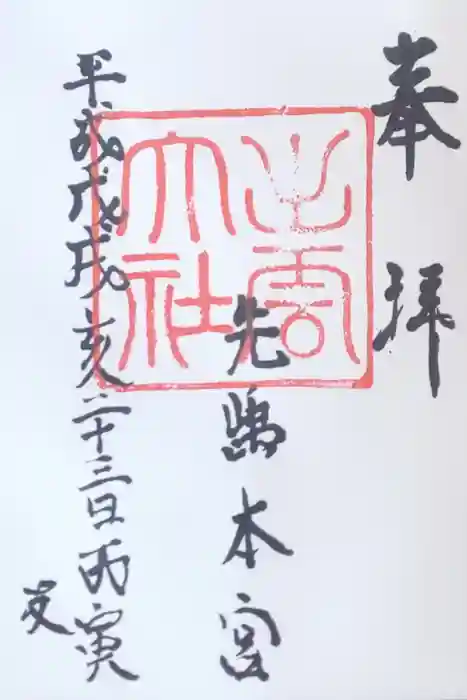 奉拝
出雲
大社
先嶋本宮
平成戊戌亥二十三日丙寅